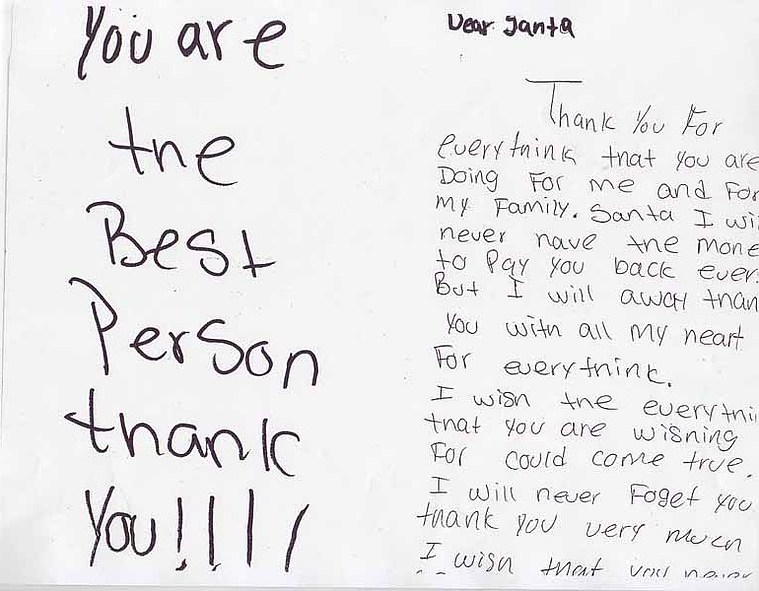 You are
the
Best
Person
thank
You!!!!!
Dear Santa
Thank You For
everythink that you are
Doing For me and For
my Family. Santa I wi
never have the mone
to Pay you back ever.
But I will away than
You with all my heart
For everythink.
I wish the everythi
that you are wishing
For could come true.
I will never Foget you
thank you very much
I wish that you never